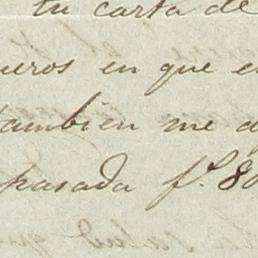 tu carta de
ueros en que e
tambien me d
pasada f.º 80